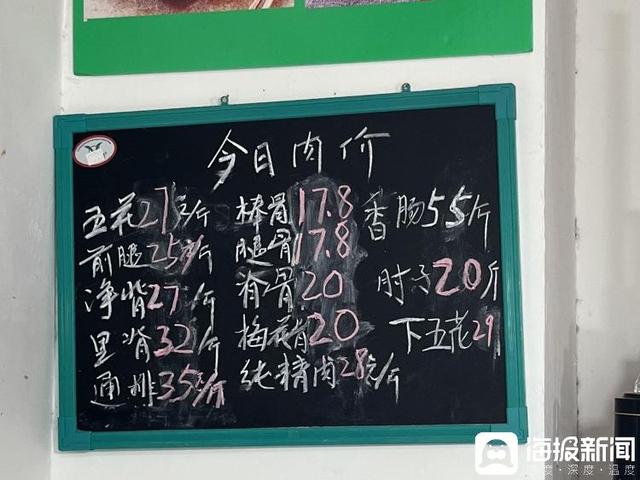 今日肉价
五花27元/斤
前腿25元/斤
净脊27/斤
里脊32/斤
通排35元/斤
棒骨17.8
腿骨17.8
脊骨20
梅花肉20
纯精肉28元/斤
香肠55斤
肘子20斤
下五花29
海报新闻
速度·深度·温度